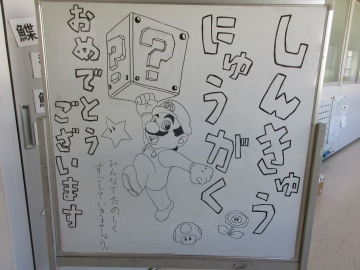 しんきゅう
にゅうがく
おめでとう
ございます
?
?
みんなでたのしく
すごしていきましょう。
鰈